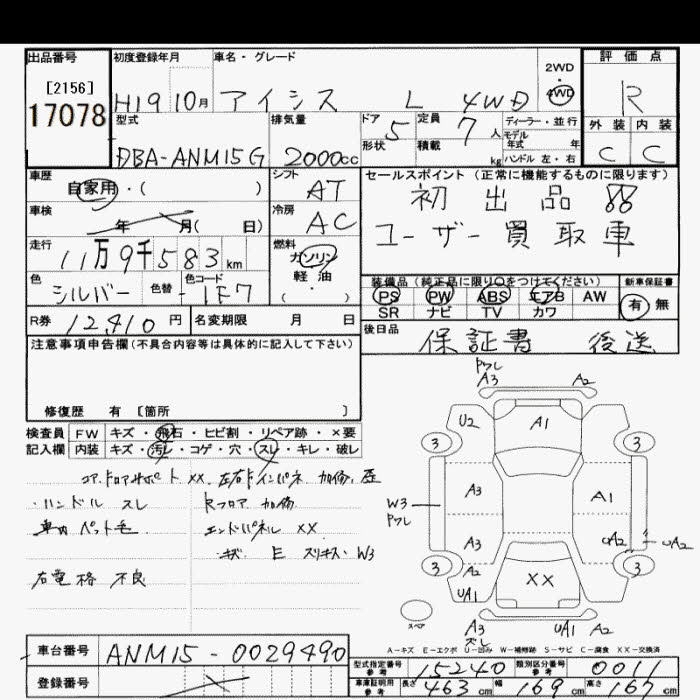 出品番号
[2156]
17078
初度登録年月
H19 10月
車名・グレード
アイシス L 4WD
2WD
・
4WD
評価点
R
外装 内装
C C
型式
DBA-ANM15G
排気量
2000cc
ドア 5
形状
定員 7 人
積載 kg
ディーラー・並行
モデル
年式 年
ハンドル 左・右
車歴
自家用・( )
シフト
AT
車検
年 月( 日)
冷房
AC
走行
11万9千583km
燃料
ガソリン
軽・油
・( )
色
シルバー
色替
色コード
1F7
R券 12,410 円
名変期限 月 日
セールスポイント(正常に機能するものに限ります)
初出品
ユーザー買取車
装備品(純正品に限り○をつけてください)
PS PW ABS エアB AW
SR ナビ TV カワ
新車保証書
有 無
後日品
保証書 後送
注意事項申告欄(不具合内容等は具体的に記入して下さい)
修復歴 有 [箇所 ]
検査員 FW キズ・飛石・ヒビ割・リペア跡・×要
記入欄 内装 キズ・汚レ・コゲ・穴・スレ・キレ・破レ
コアサポート XX 左右Fインパネ 加修 歴
・ハンドル スレ Rフロア 加修
車内 ペット毛 エンドパネル XX
キズ E スリキズ・W3
右電格 不良
Pワレ
A3 A2
U2 A1
3 3
A3 A1
W3
Pワレ
A3 UA2 UA2
3 A2 3
UA1 XX
スペア
A3 UA1 A2
ズレ
A-キズ E-エクボ U-凹み W-補修跡 S-サビ C-腐食 XX-交換済
車台番号 ANM15-0029490
登録番号
型式指定番号
参考
15240
類別区分番号
参考
0011
車庫証明用
参考
長さ 463cm 幅 169cm 高さ 167cm